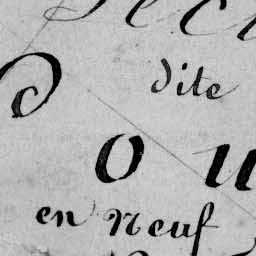 dite
ou
en neuf